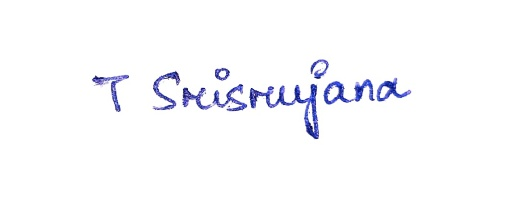 T Srisrujana